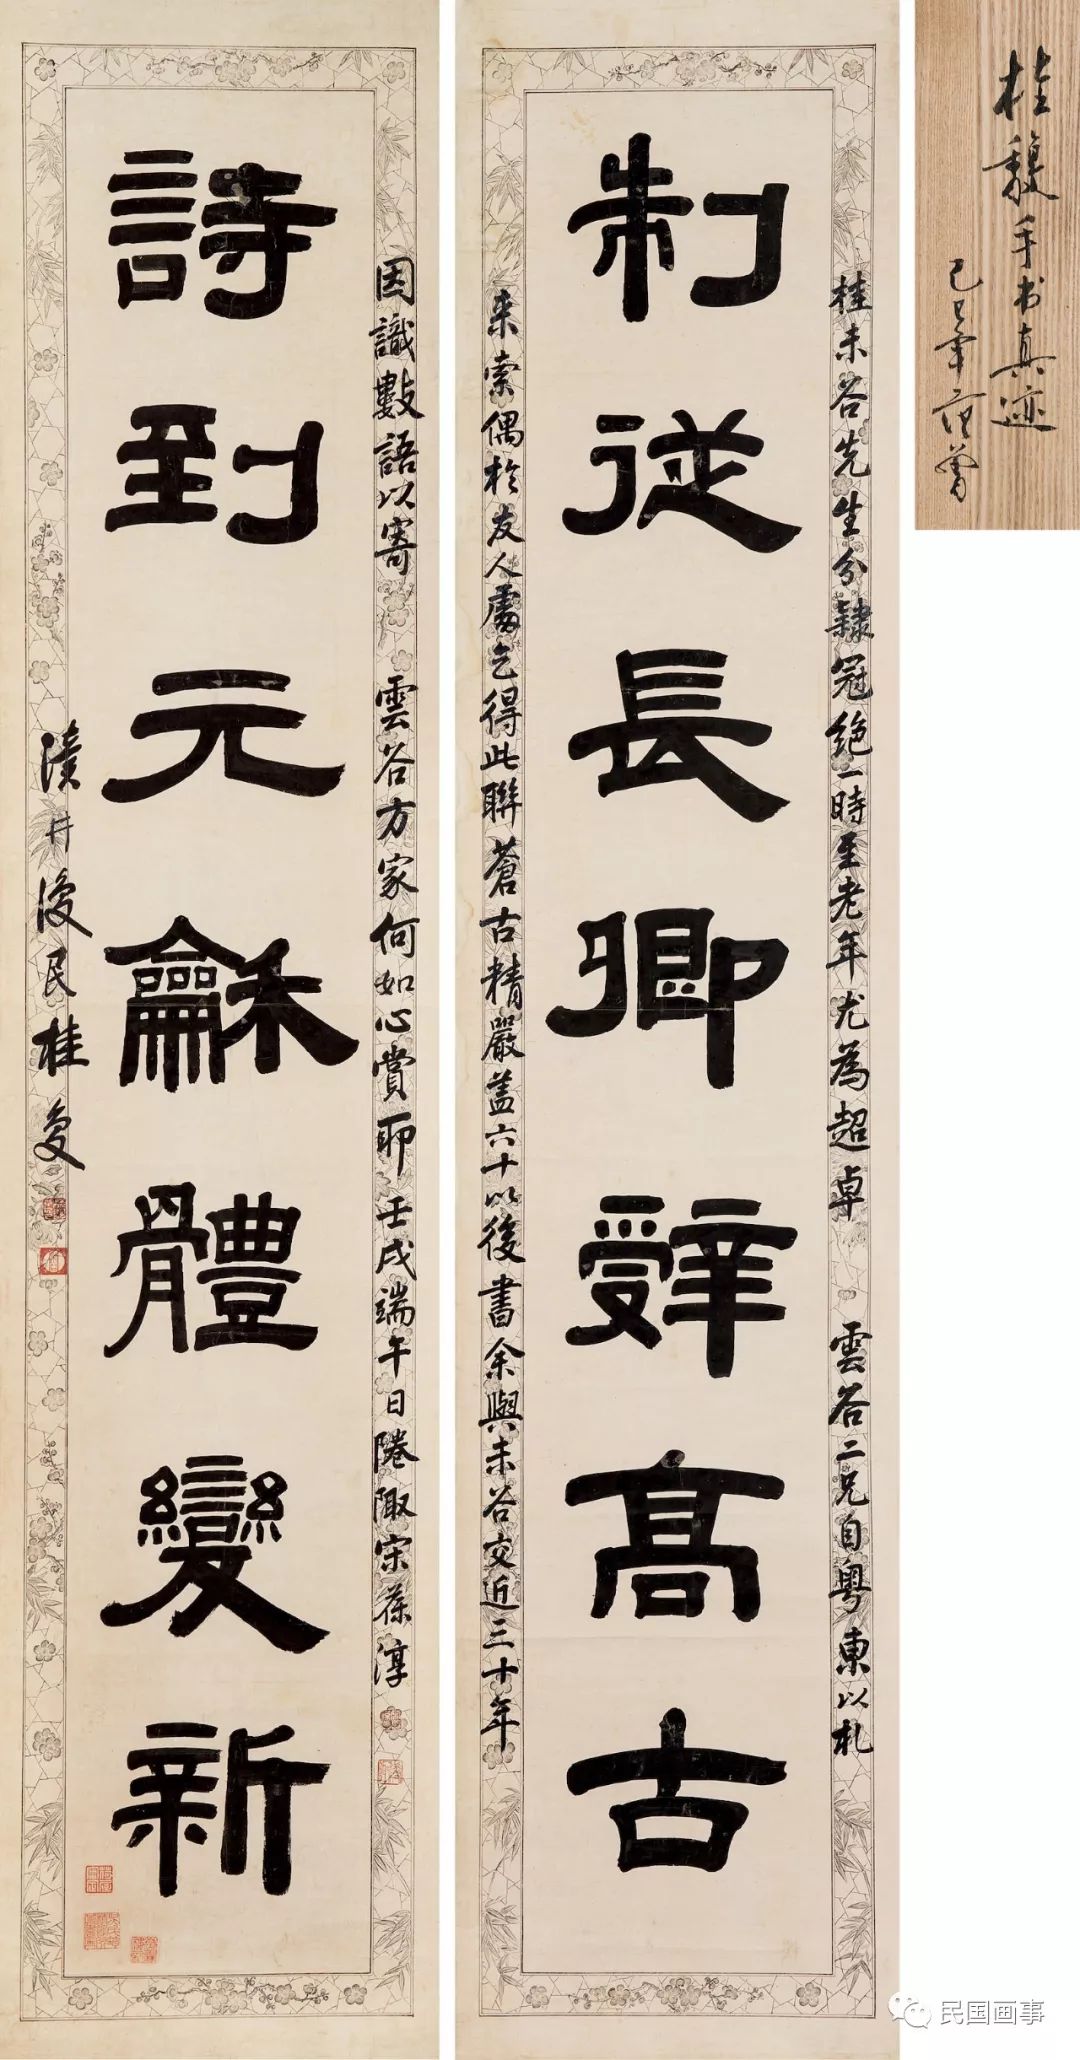 制從長卿辭高古
詩到元龢體變新
桂未谷先生分隸冠絶一時至老年尤為超卓 雲谷二兄自粵東以札
来索偶於友人處乞得此聯蒼古精嚴蓋六十以後書余與未谷交近三十年
因識數語以寄 雲谷方家何如心賞耶壬戌端午日隆陬宋葆淳
瀆井復民桂馥
桂馥手书真迹
己巳年范曾
民国画事